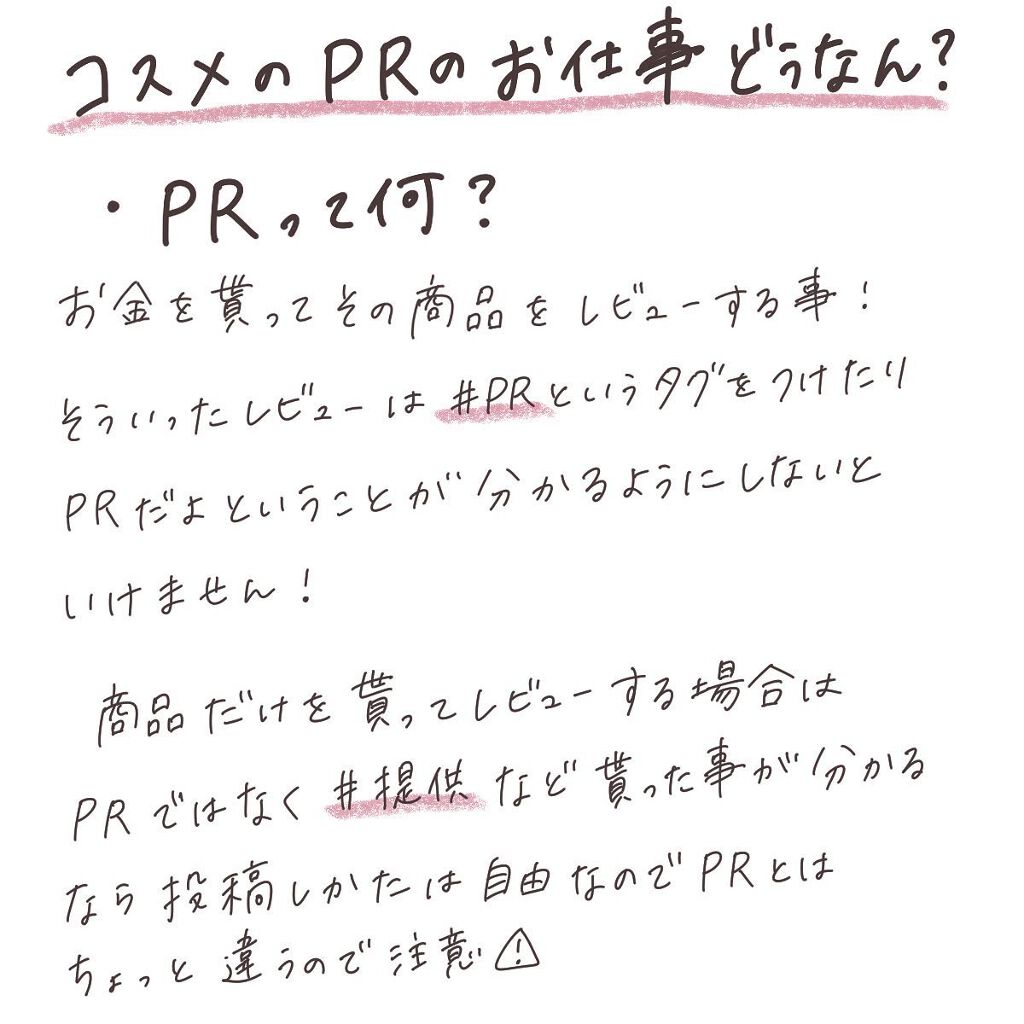 コスメのPRのお仕事どうなん?
・PRって何?
お金を貰ってその商品をレビューする事!
そういったレビューは#PRというタグをつけたり
PRだよということが分かるようにしないと
いけません!
商品だけを貰ってレビューする場合は
PRではなく#提供など貰った事が分かる
なら投稿しかたは自由なのでPRとは
ちょっと違うので注意⚠